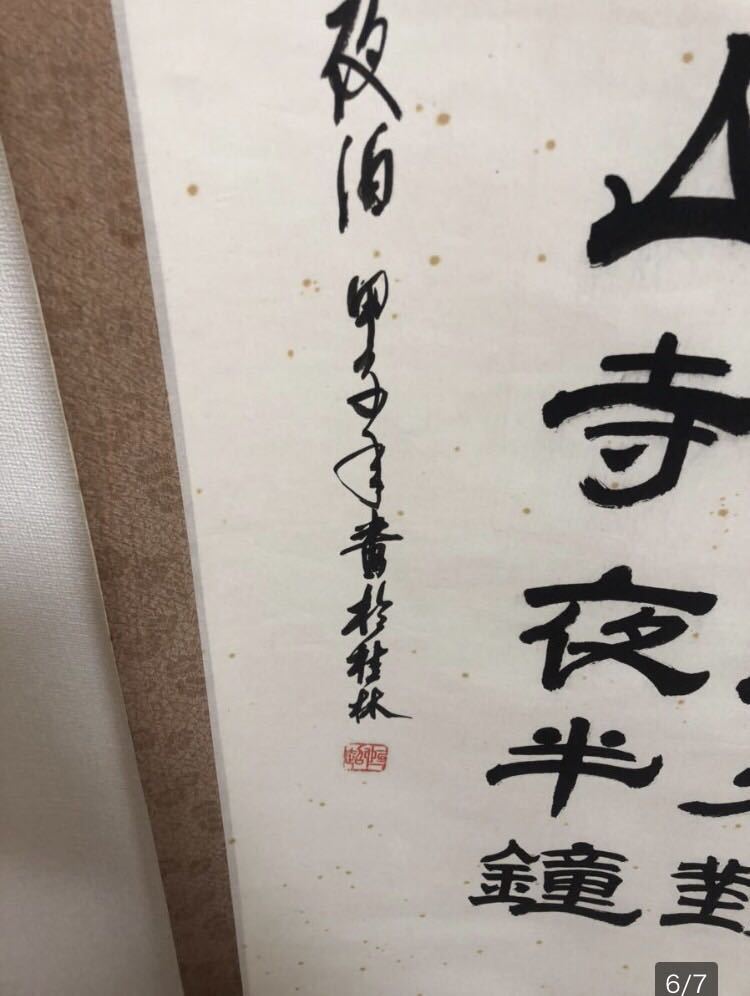 對
山寺夜半鐘
夜泊 甲子年書於桂林
6/7